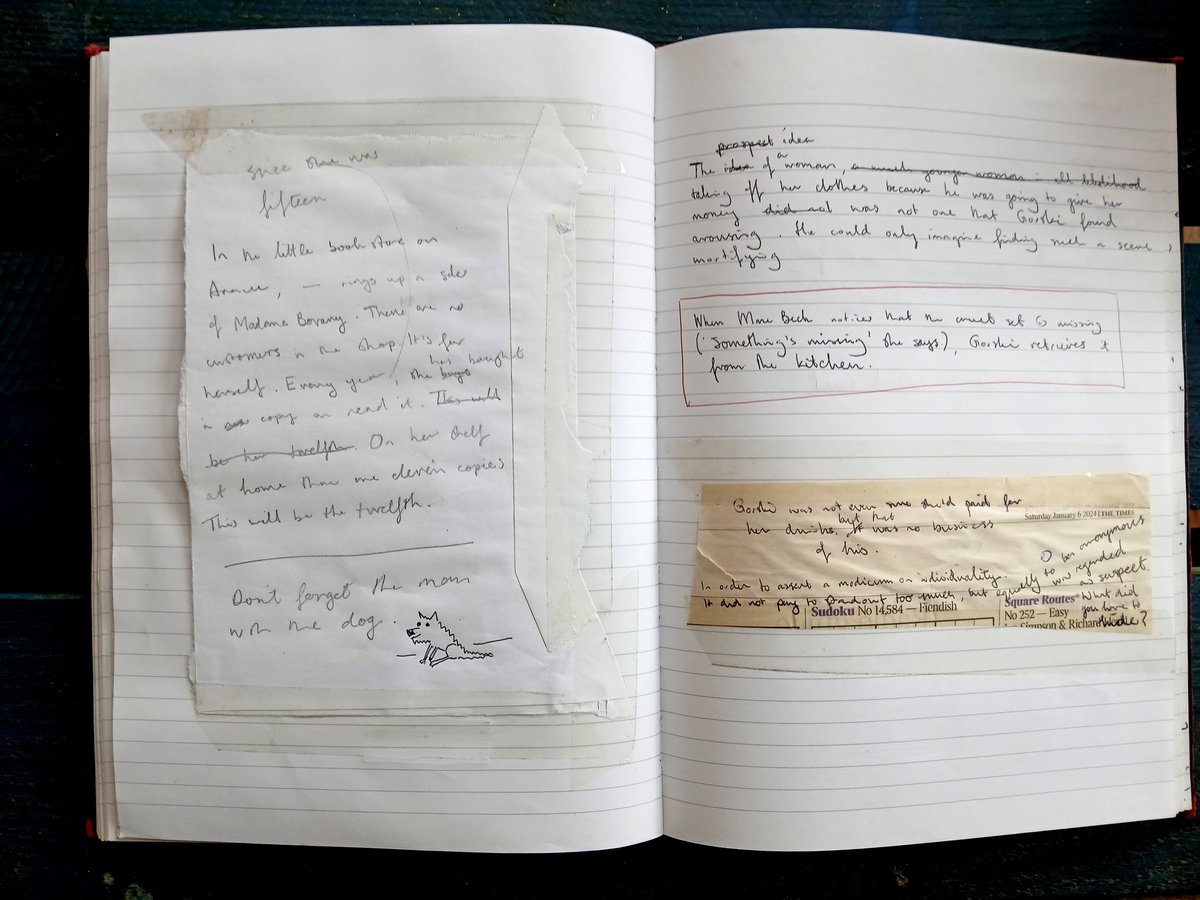 since she was
fifteen
In the little bookstore on
Avenue, — rings up a sale
of Madame Bovary. There are no
customers in the shop. It's for
has bought
herself. Every year, she buys
a new copy an read it. This will
be her twelfth. On her shelf
at home there are eleven copies
This will be the twelfth.
Don't forget the man
with the dog.
prospect idea
The idea of a woman, a much younger woman in all likelihood
taking off her clothes because he was going to give her
money did not was not one that Gorski found
arousing. He could only imagine finding such a scene
mortifying
When Mme Beck notices that the cruet set is missing
('Something's missing' she says), Gorski retrieves it
from the kitchen.
Gorski was not even sure she'd paid for
but that
her drinks. It was no business
of his.
Saturday January 6 2024 | THE TIMES
In order to assert a modicum on individuality
It did not pay to stand out too much, but equally to be anonymous
was regarded as suspect.
What did
you have to
hide?
Sudoku No 14,584 — Fiendish
Square Routes
No 252 — Easy
Simpson & Richard